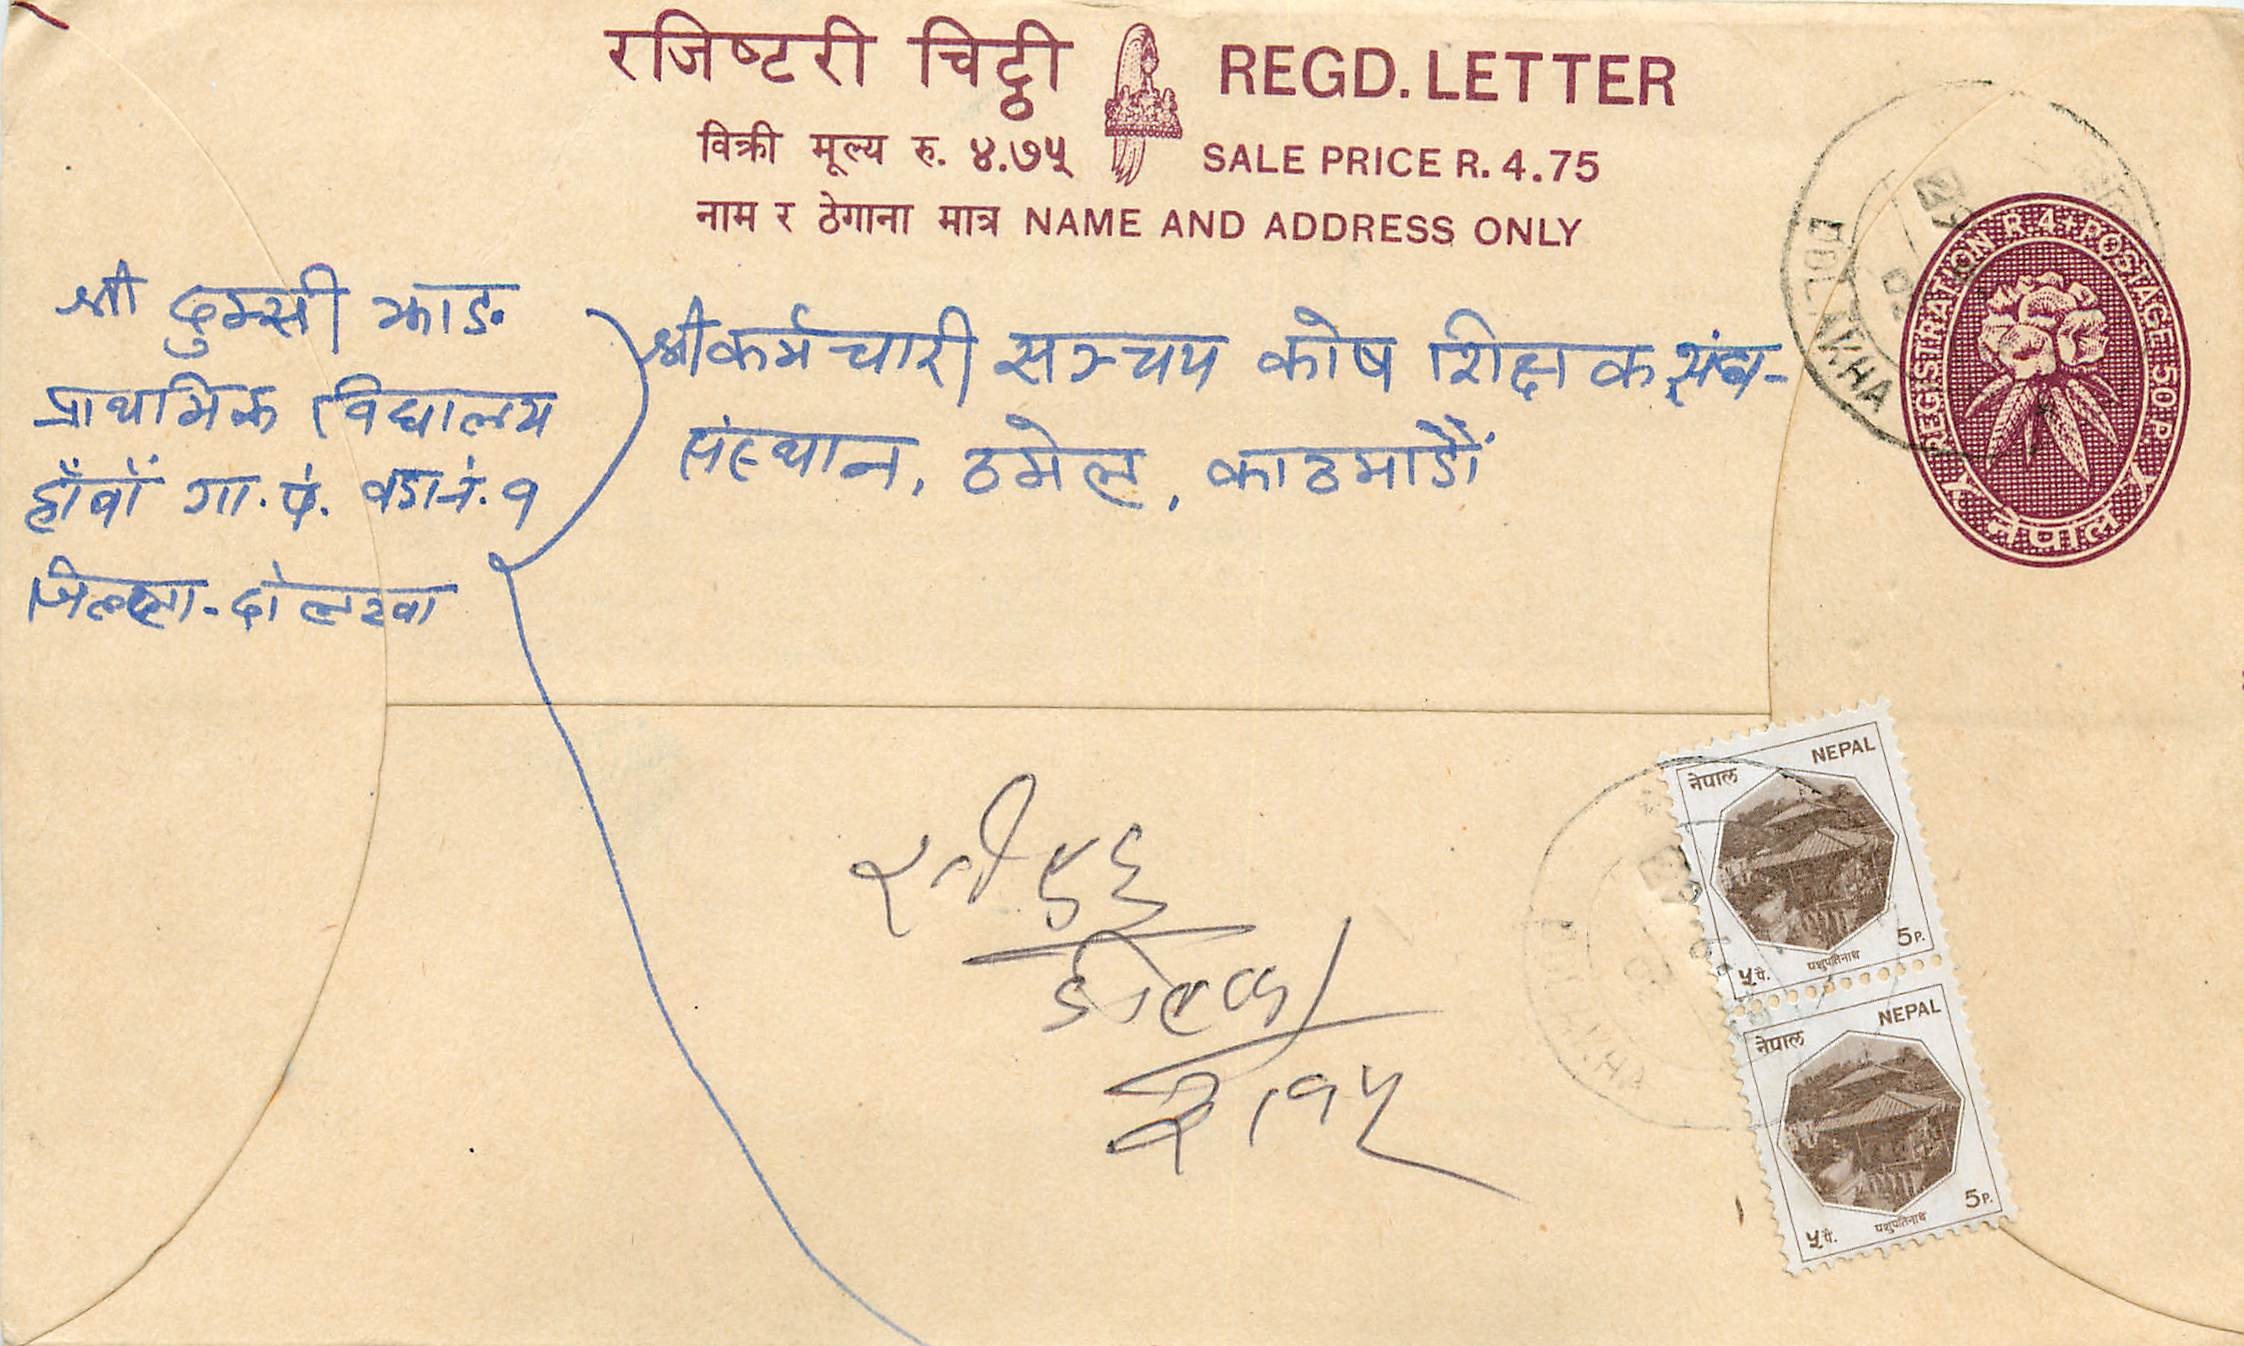 रजिष्टरी चिठ्ठी REGD. LETTER
विक्री मूल्य रु. ४.७५ SALE PRICE R. 4.75
नाम र ठेगाना मात्र NAME AND ADDRESS ONLY
REGISTRATION R. 4 + POSTAGE 50 P.
नेपाल
DOLAKHA
श्री दुम्सी झाङ
प्राथमिक विद्यालय
गा. पं. वडा नं. १
जिल्ला-दोलखा
श्री कर्मचारी सञ्चय कोष शिक्षक
संस्थान, ठमेल, काठमाडौं
नेपाल NEPAL
५ पै. पशुपतिनाथ 5 P.
नेपाल NEPAL
५ पै. पशुपतिनाथ 5 P.